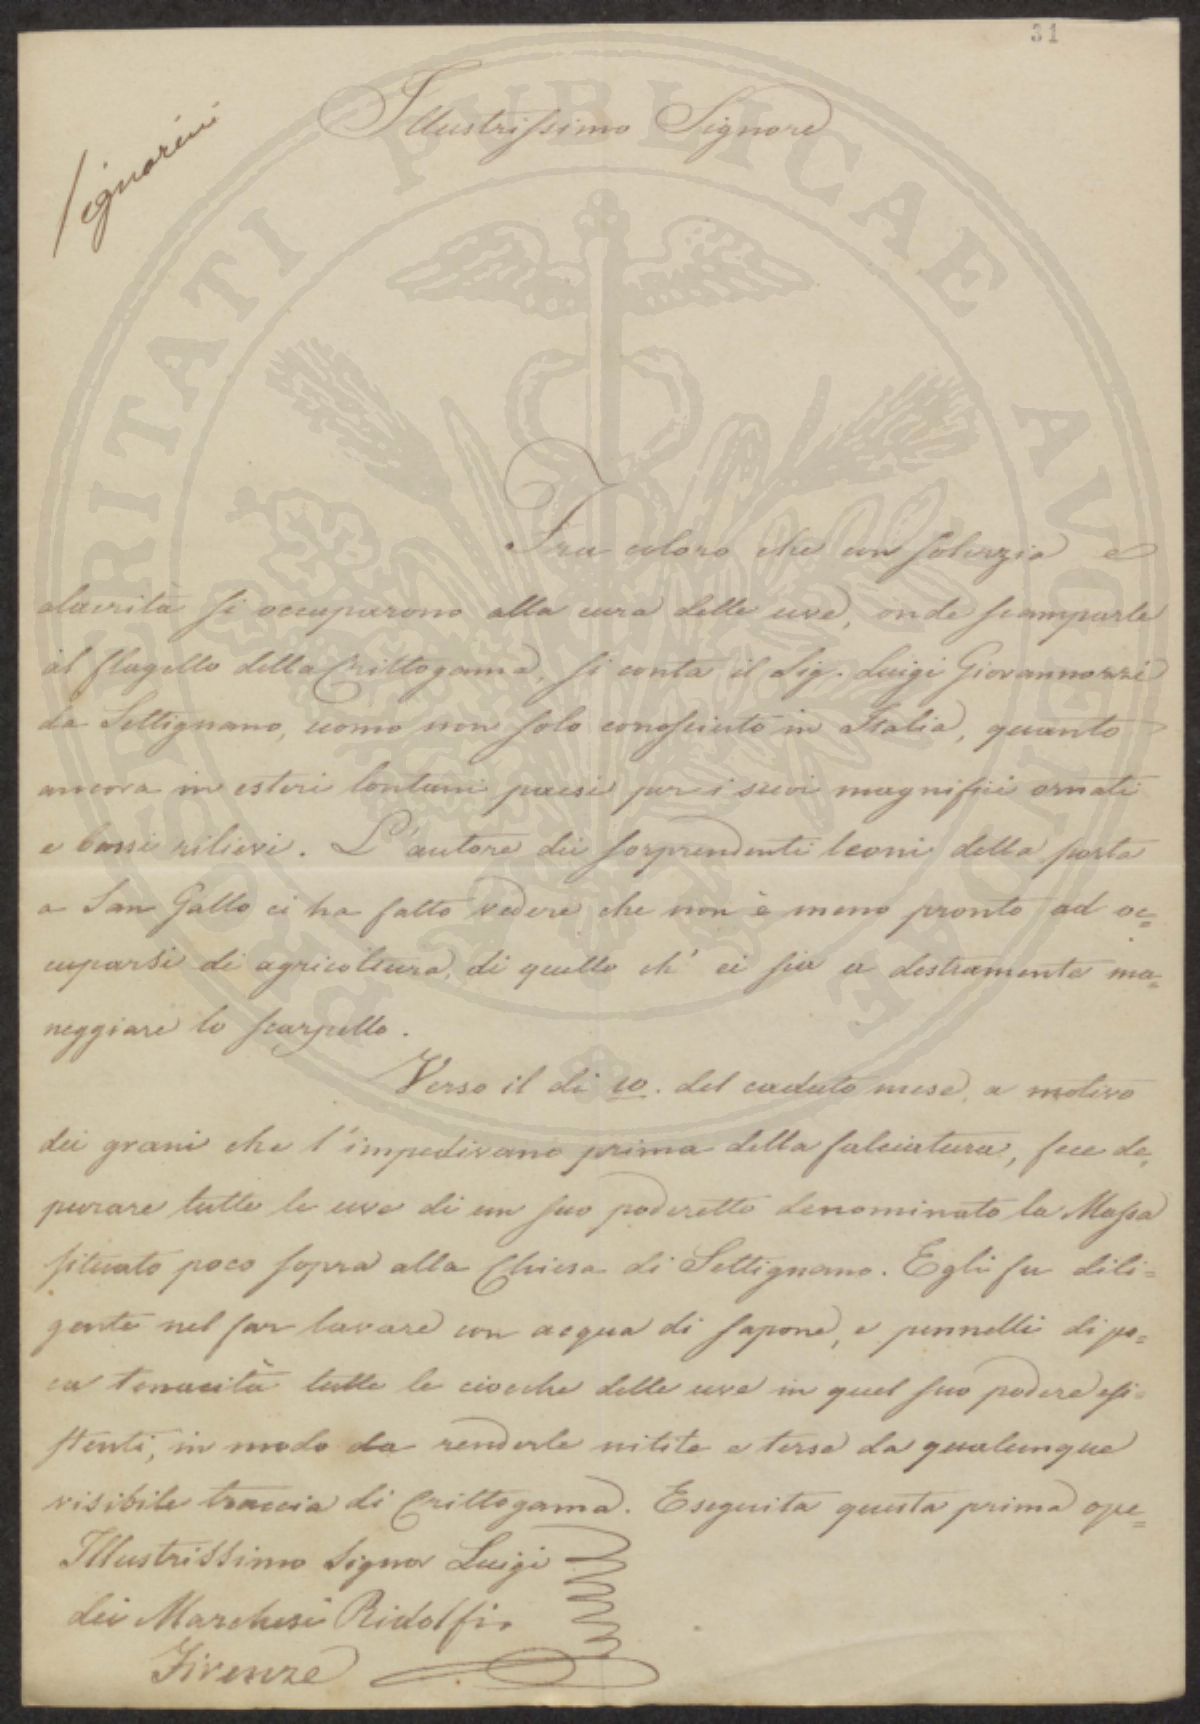 31
Signorini
Illustrissimo Signore
Fra coloro che con solerzia e
alacrità si occuparono alla cura delle uve, onde scamparle
al flagello della Crittogama, si conta il Sig. Luigi Giovannozzi
da Settignano, uomo non solo conosciuto in Italia, quanto
ancora in esteri lontani paesi per i suoi magnifici ornati
e bassi rilievi. L'autore dei sorprendenti leoni della porta
a San Gallo ci ha fatto vedere che non è meno pronto ad oc=
cuparsi di agricoltura, di quello ch' ei sia a destramente ma=
neggiare lo scarpello.
Verso il dì 10. del caduto mese, a motivo
dei grani che l'impedivano prima della falciatura, fece de=
purare tutte le uve di un suo poderetto denominato la Massa
situato poco sopra alla Chiesa di Settignano. Egli fu dili=
gente nel far lavare con acqua di sapone, e pennelli di po=
ca tenacità tutte le ciocche delle uve in quel suo podere esi=
stenti, in modo da renderle nitite e terse da qualunque
visibile traccia di Crittogama. Eseguita questa prima ope=
Illustrissimo Signor Luigi
dei Marchesi Ridolfi.
Firenze
PROSPERITATI PUBLICAE AUGENDAE